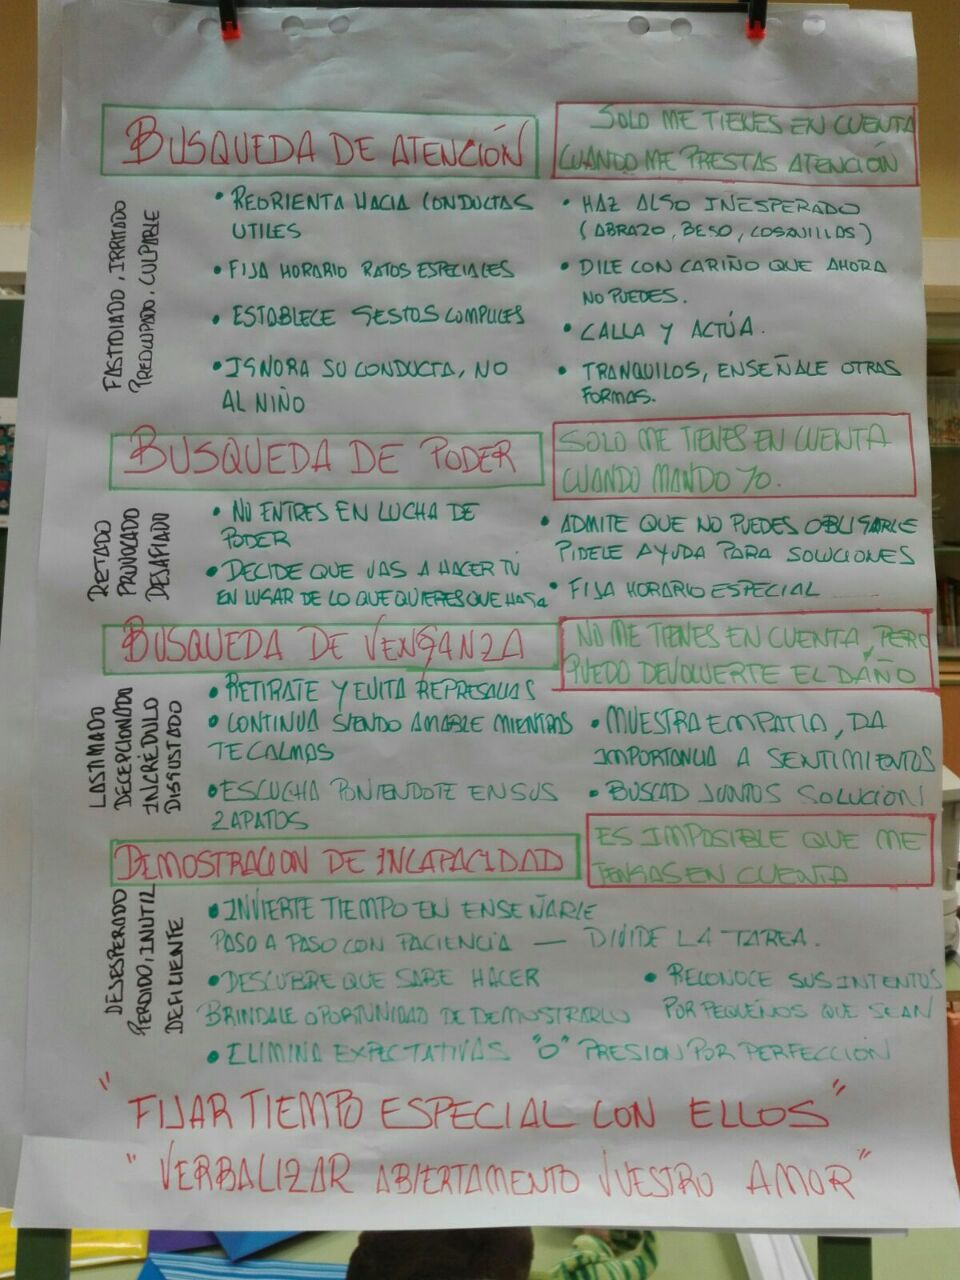 BUSQUEDA DE ATENCIÓN
SOLO ME TIENES EN CUENTA
CUANDO ME PRESTAS ATENCIÓN
FASTIDIADO, IRRITADO
PREOCUPADO, CULPABLE
• REORIENTA HACIA CONDUCTAS
UTILES
• FIJA HORARIO RATOS ESPECIALES
• ESTABLECE GESTOS COMPLICES
• IGNORA SU CONDUCTA, NO
AL NIÑO
• HAZ ALGO INESPERADO
(ABRAZO, BESO, COSQUILLAS)
• DILE CON CARIÑO QUE AHORA
NO PUEDES.
• CALLA Y ACTÚA.
• TRANQUILOS, ENSEÑALE OTRAS
FORMAS.
BUSQUEDA DE PODER
SOLO ME TIENES EN CUENTA
CUANDO MANDO YO.
RETADO
PROVOCADO
DESAFIADO
• NO ENTRES EN LUCHA DE
PODER
• DECIDE QUE VAS A HACER TÚ
EN LUGAR DE LO QUE QUIERES QUE HAGA
• ADMITE QUE NO PUEDES OBLIGARLE
PIDELE AYUDA PARA SOLUCIONES
• FIJA HORARIO ESPECIAL
BUSQUEDA DE VENGANZA
NO ME TIENES EN CUENTA, PERO
PUEDO DEVOLVERTE EL DAÑO
LASTIMADO
DECEPCIONADO
INCRÉDULO
DISGUSTADO
• RETIRATE Y EVITA REPRESALIAS
• CONTINUA SIENDO AMABLE MIENTRAS
TE CALMAS
• ESCUCHA PONIENDOTE EN SUS
ZAPATOS
• MUESTRA EMPATIA, DA
IMPORTANCIA A SENTIMIENTOS
• BUSCAD JUNTOS SOLUCION
DEMOSTRACION DE INCAPACIDAD
ES IMPOSIBLE QUE ME
TENGAS EN CUENTA
DESESPERADO
PERDIDO, INUTIL
DEFICIENTE
• INVIERTE TIEMPO EN ENSEÑARLE
PASO A PASO CON PACIENCIA — DIVIDE LA TAREA.
• DESCUBRE QUE SABE HACER
BRINDALE OPORTUNIDAD DE DEMOSTRARLO
• RECONOCE SUS INTENTOS
POR PEQUEÑOS QUE SEAN
• ELIMINA EXPECTATIVAS "O" PRESION POR PERFECCIÓN
"FIJAR TIEMPO ESPECIAL CON ELLOS"
"VERBALIZAR ABIERTAMENTO VUESTRO AMOR"